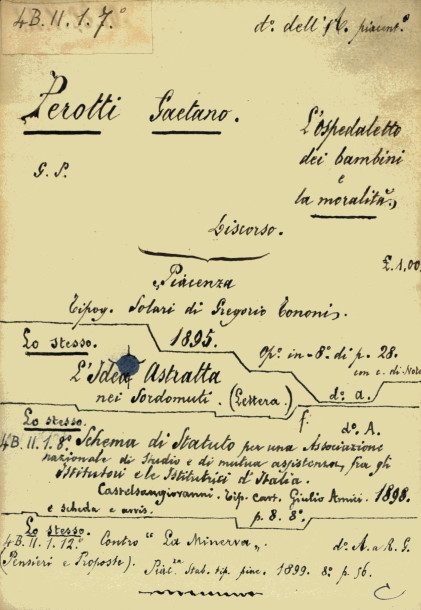 4B.II.1.7.° d.° dell'A. piacent.°
Perotti Gaetano. L'Ospedaletto
dei bambini
G. P. e
la moralità.
Discorso.
£.1,00
Piacenza
Tipog. Solari di Gregorio Tononi,
1895. Op.° in-8.° di p. 28.
Lo stesso. con c. di
L'Idea Astratta
nei Sordomuti. (Lettera.) d.° a.
Lo stesso. f. d.° A.
4B.II.1.8.° Schema di Statuto per una Associazione
nazionale di Studio e di mutua assistenza, fra gli
Istitutori e le Istitutrici d'Italia.
Castelsangiovanni. Tip. cart. Giulio Amici. 1898.
e scheda e avvis. p. 8. 8.°
Lo stesso.
4B.II.1.12.° Contro "La Minerva„. d.° A. a R. G.
(Pensieri e Proposte). Piac.za Stab. tip. piac. 1899. 8.° p. 56.
C